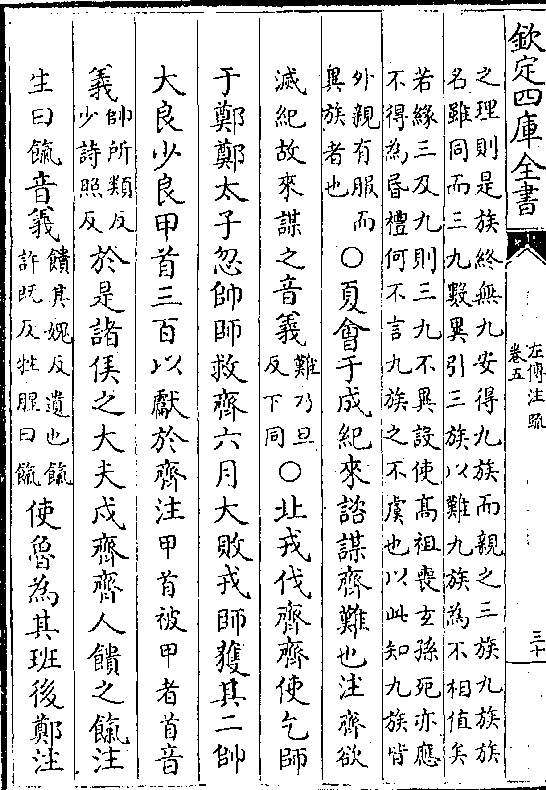 欽定四庫全書
左傳注疏
卷五
三十
之理則是族終無九安得九族而親之三族九族族
名雖同而三九數異引三族以難九族為不相值矣
若緣三及九則三九不異設使髙祖喪玄孫死亦應
不得為昏禮何不言九族之不虞也以此知九族皆
外親有服而
異族者也
○夏會于成紀來諮謀齊難也注齊欲
滅紀故來謀之音義
難乃旦
反下同
○北戎伐齊齊使乞師
于鄭鄭太子忽帥師救齊六月大敗戎師獲其二帥
大良少良甲首三百以獻於齊注甲首被甲者首音
義
帥所類反
少詩照反
於是諸侯之大夫戍齊齊人饋之餼注
生曰餼音義
饋其媿反遺也餼
許既反牲腥曰餼
使魯為其班後鄭注